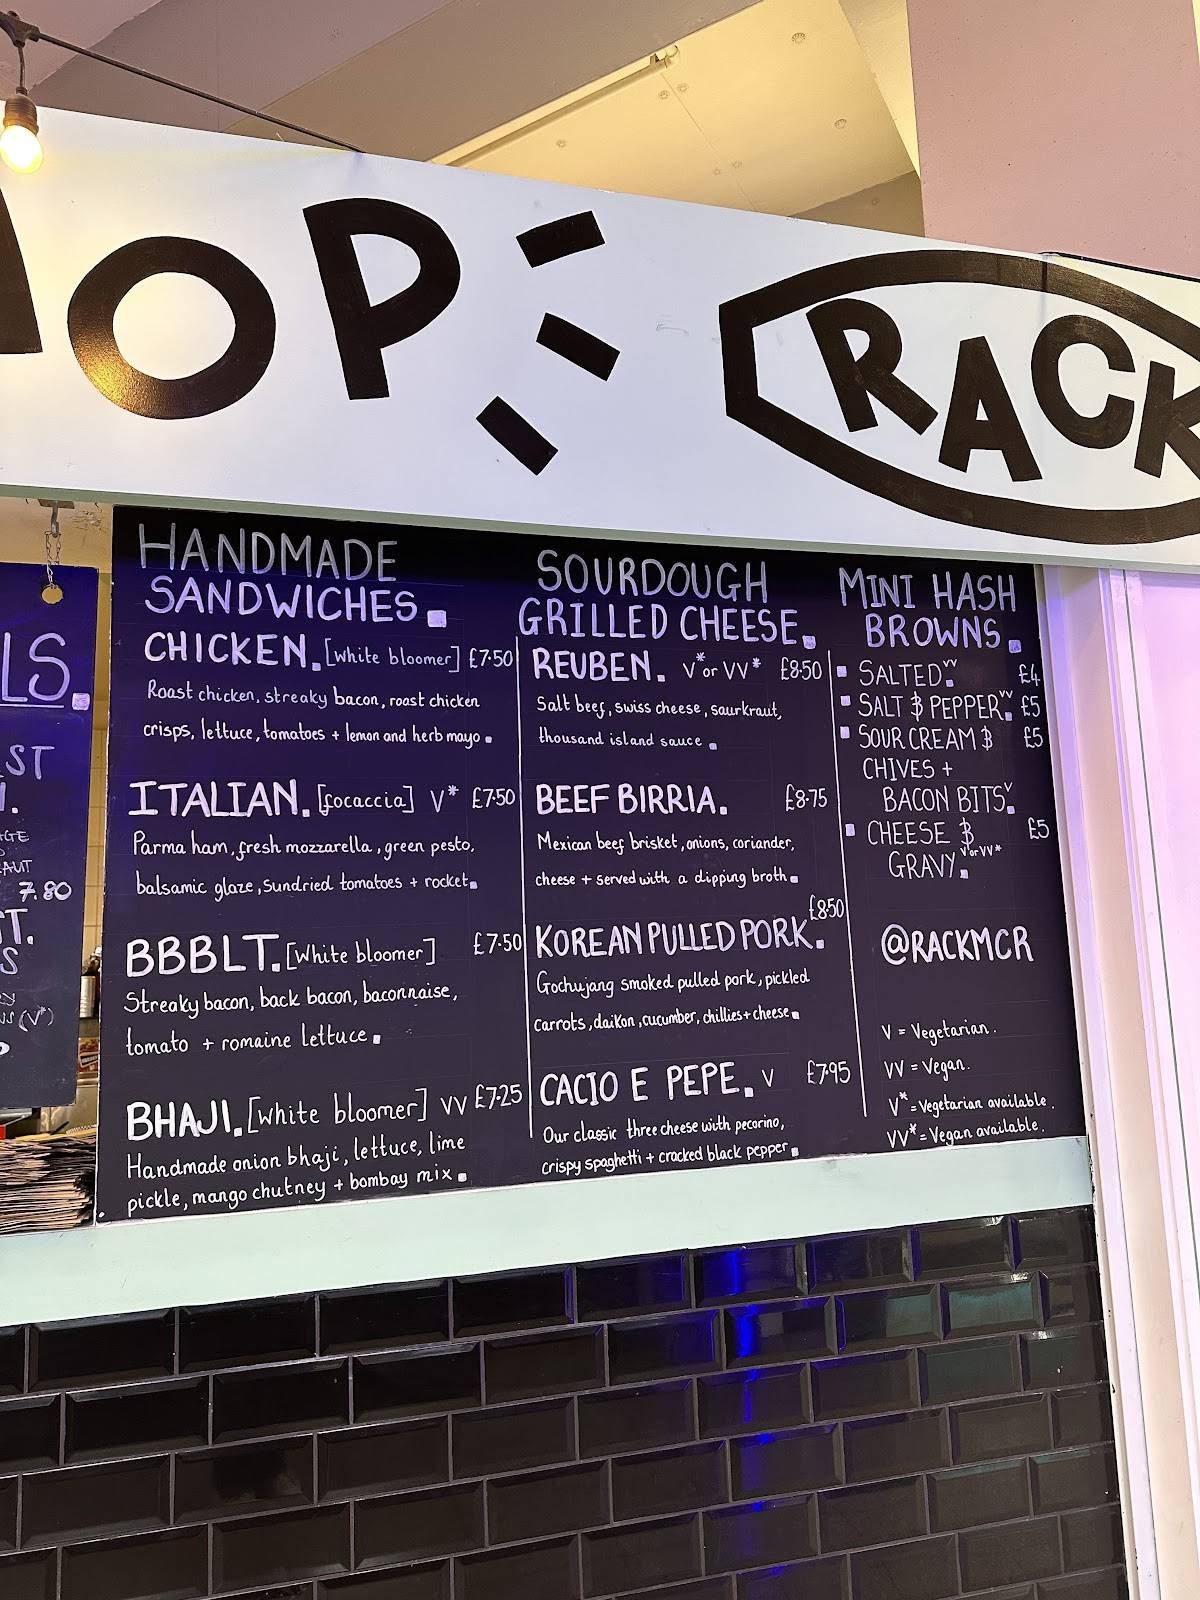 OP
RACK
HANDMADE
SANDWICHES.
CHICKEN. [white bloomer] £7.50
Roast chicken, streaky bacon, roast chicken
crisps, lettuce, tomatoes + lemon and herb mayo.
ITALIAN. [focaccia] V* £7.50
Parma ham, fresh mozzarella, green pesto,
balsamic glaze, sundried tomatoes + rocket.
BBBLT. [White bloomer] £7.50
Streaky bacon, back bacon, baconnaise,
tomato + romaine lettuce.
BHAJI. [white bloomer] VV £7.25
Handmade onion bhaji, lettuce, lime
pickle, mango chutney + bombay mix.
SOURDOUGH
GRILLED CHEESE.
REUBEN. V* or VV* £8.50
Salt beef, swiss cheese, saurkraut,
thousand island sauce.
BEEF BIRRIA. £8.75
Mexican beef brisket, onions, coriander,
cheese + served with a dipping broth.
KOREAN PULLED PORK. £8.50
Gochujang smoked pulled pork, pickled
carrots, daikon, cucumber, chillies + cheese.
CACIO E PEPE. V £7.95
Our classic three cheese with pecorino,
crispy spaghetti + cracked black pepper.
MINI HASH
BROWNS.
SALTED VV. £4
SALT & PEPPER VV. £5
SOUR CREAM & £5
CHIVES +
BACON BITS V.
CHEESE & £5
GRAVY V or VV*.
@RACKMCR
V = Vegetarian.
VV = Vegan.
V* = Vegetarian available.
VV* = Vegan available.
LS.
ST
GE
AUT
7.80
T.
S
(V*)